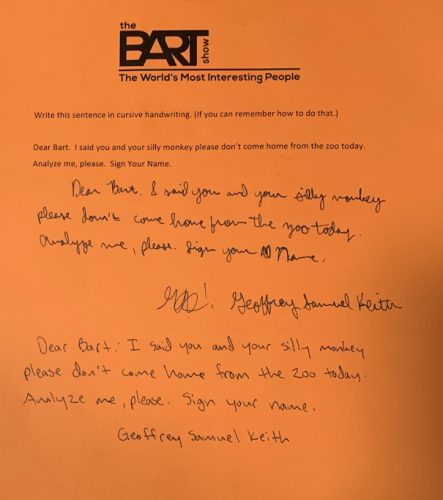 the
BART
show
The World's Most Interesting People
Write this sentence in cursive handwriting. (If you can remember how to do that.)
Dear Bart.  I said you and your silly monkey please don't come home from the zoo today.
Analyze me, please.  Sign Your Name.
Dear Bart. I said you and your silly monkey
please don't come home from the zoo today.
Analyze me, please. Sign your Name.
Geoffrey Samuel Keith
Dear Bart: I said you and your silly monkey
please don't come home from the zoo today.
Analyze me, please. Sign your name.
Geoffrey Samuel Keith